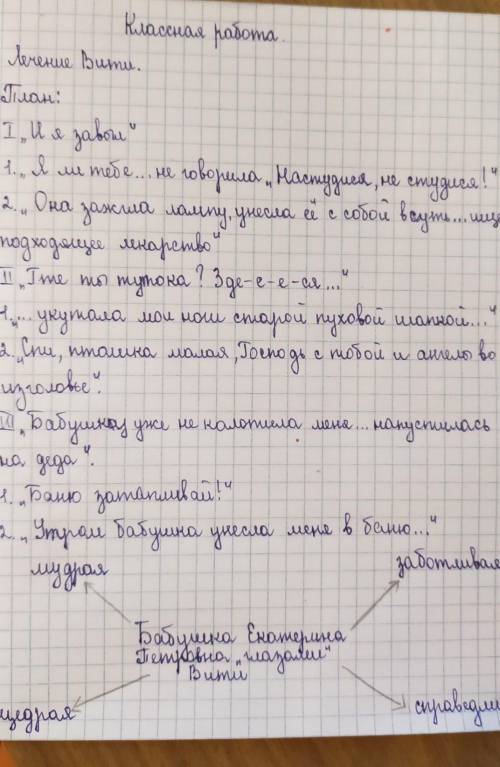 Классная работа.
Лечение Вити.
План:
I „И я завыл“
1. „Я ли тебе... не говорила „Настудися, не студися!“
2. „Она зажгла лампу, унесла её с собой в куть... ище
подходящее лекарство“
II „Где ты тутока? Зде-с-е-ся...“
1. „... укутала мои ноги старой пуховой шапкой...“
2. „Спи, пташка малая, Господь с тобой и ангелы во
изголовье“.
III „Бабушка уже не колотила меня... напустилась
на деда“.
1. „Баню затапливай!“
2. „Утром бабушка унесла меня в баню...“
мудрая заботливая
Бабушка Екатерина
Петровна „глазами“
Вити
щедрая справедли